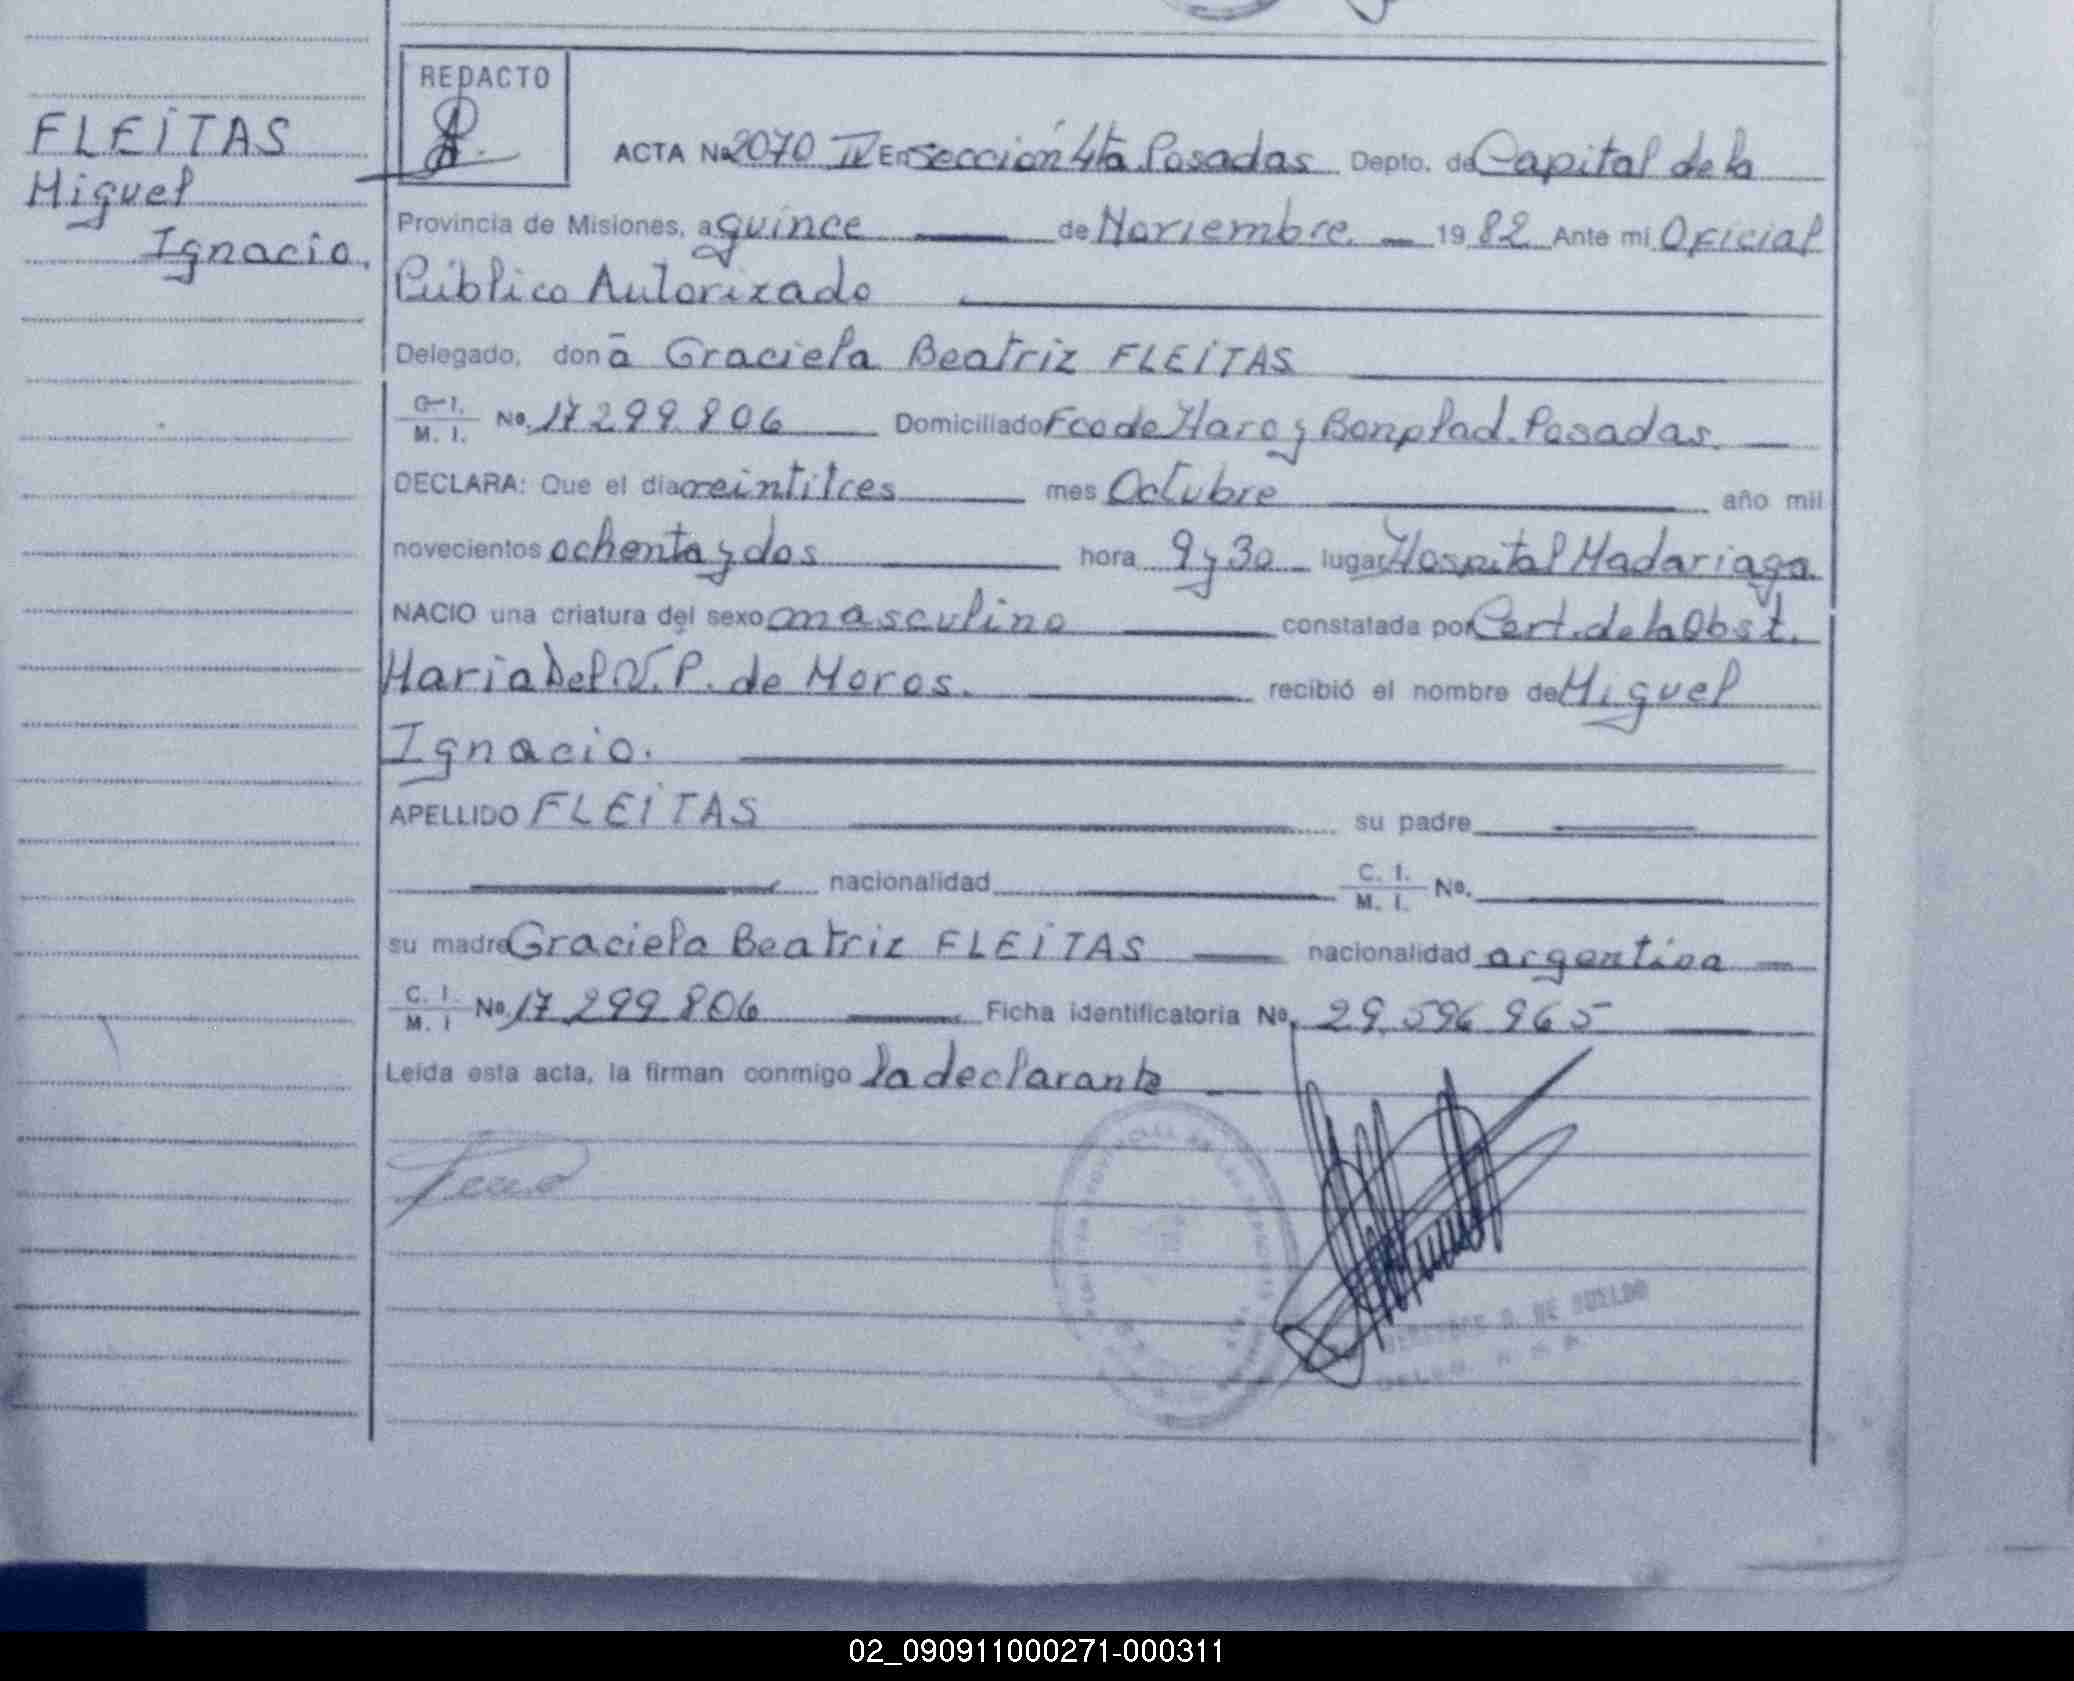 REDACTO
FLEITAS
Miguel
Ignacio.
ACTA No 2070 IV En Sección 4ta Posadas Depto. de Capital de la
Provincia de Misiones, a quince de Noviembre 19 82 Ante mi Oficial
Público Autorizado
Delegado, don ā Graciela Beatriz FLEITAS
C. I. M. I. No. 17 299 806 Domiciliado Fco de Haro y Bonplad. Posadas.
DECLARA: Que el día veintitres mes Octubre año mil
novecientos ochenta y dos hora 9 y 30 lugar Hospital Madariaga.
NACIO una criatura del sexo masculino constatada por Cert. de la Obst.
Maria Del V. P. de Moros. recibió el nombre de Miguel
Ignacio.
APELLIDO FLEITAS su padre
nacionalidad C. I. M. I. No.
su madre Graciela Beatriz FLEITAS nacionalidad argentina
C. I. M. I No. 17 299 806 Ficha identificatoria No. 29.596 965
Leída esta acta, la firman conmigo la declarante
02_090911000271-000311